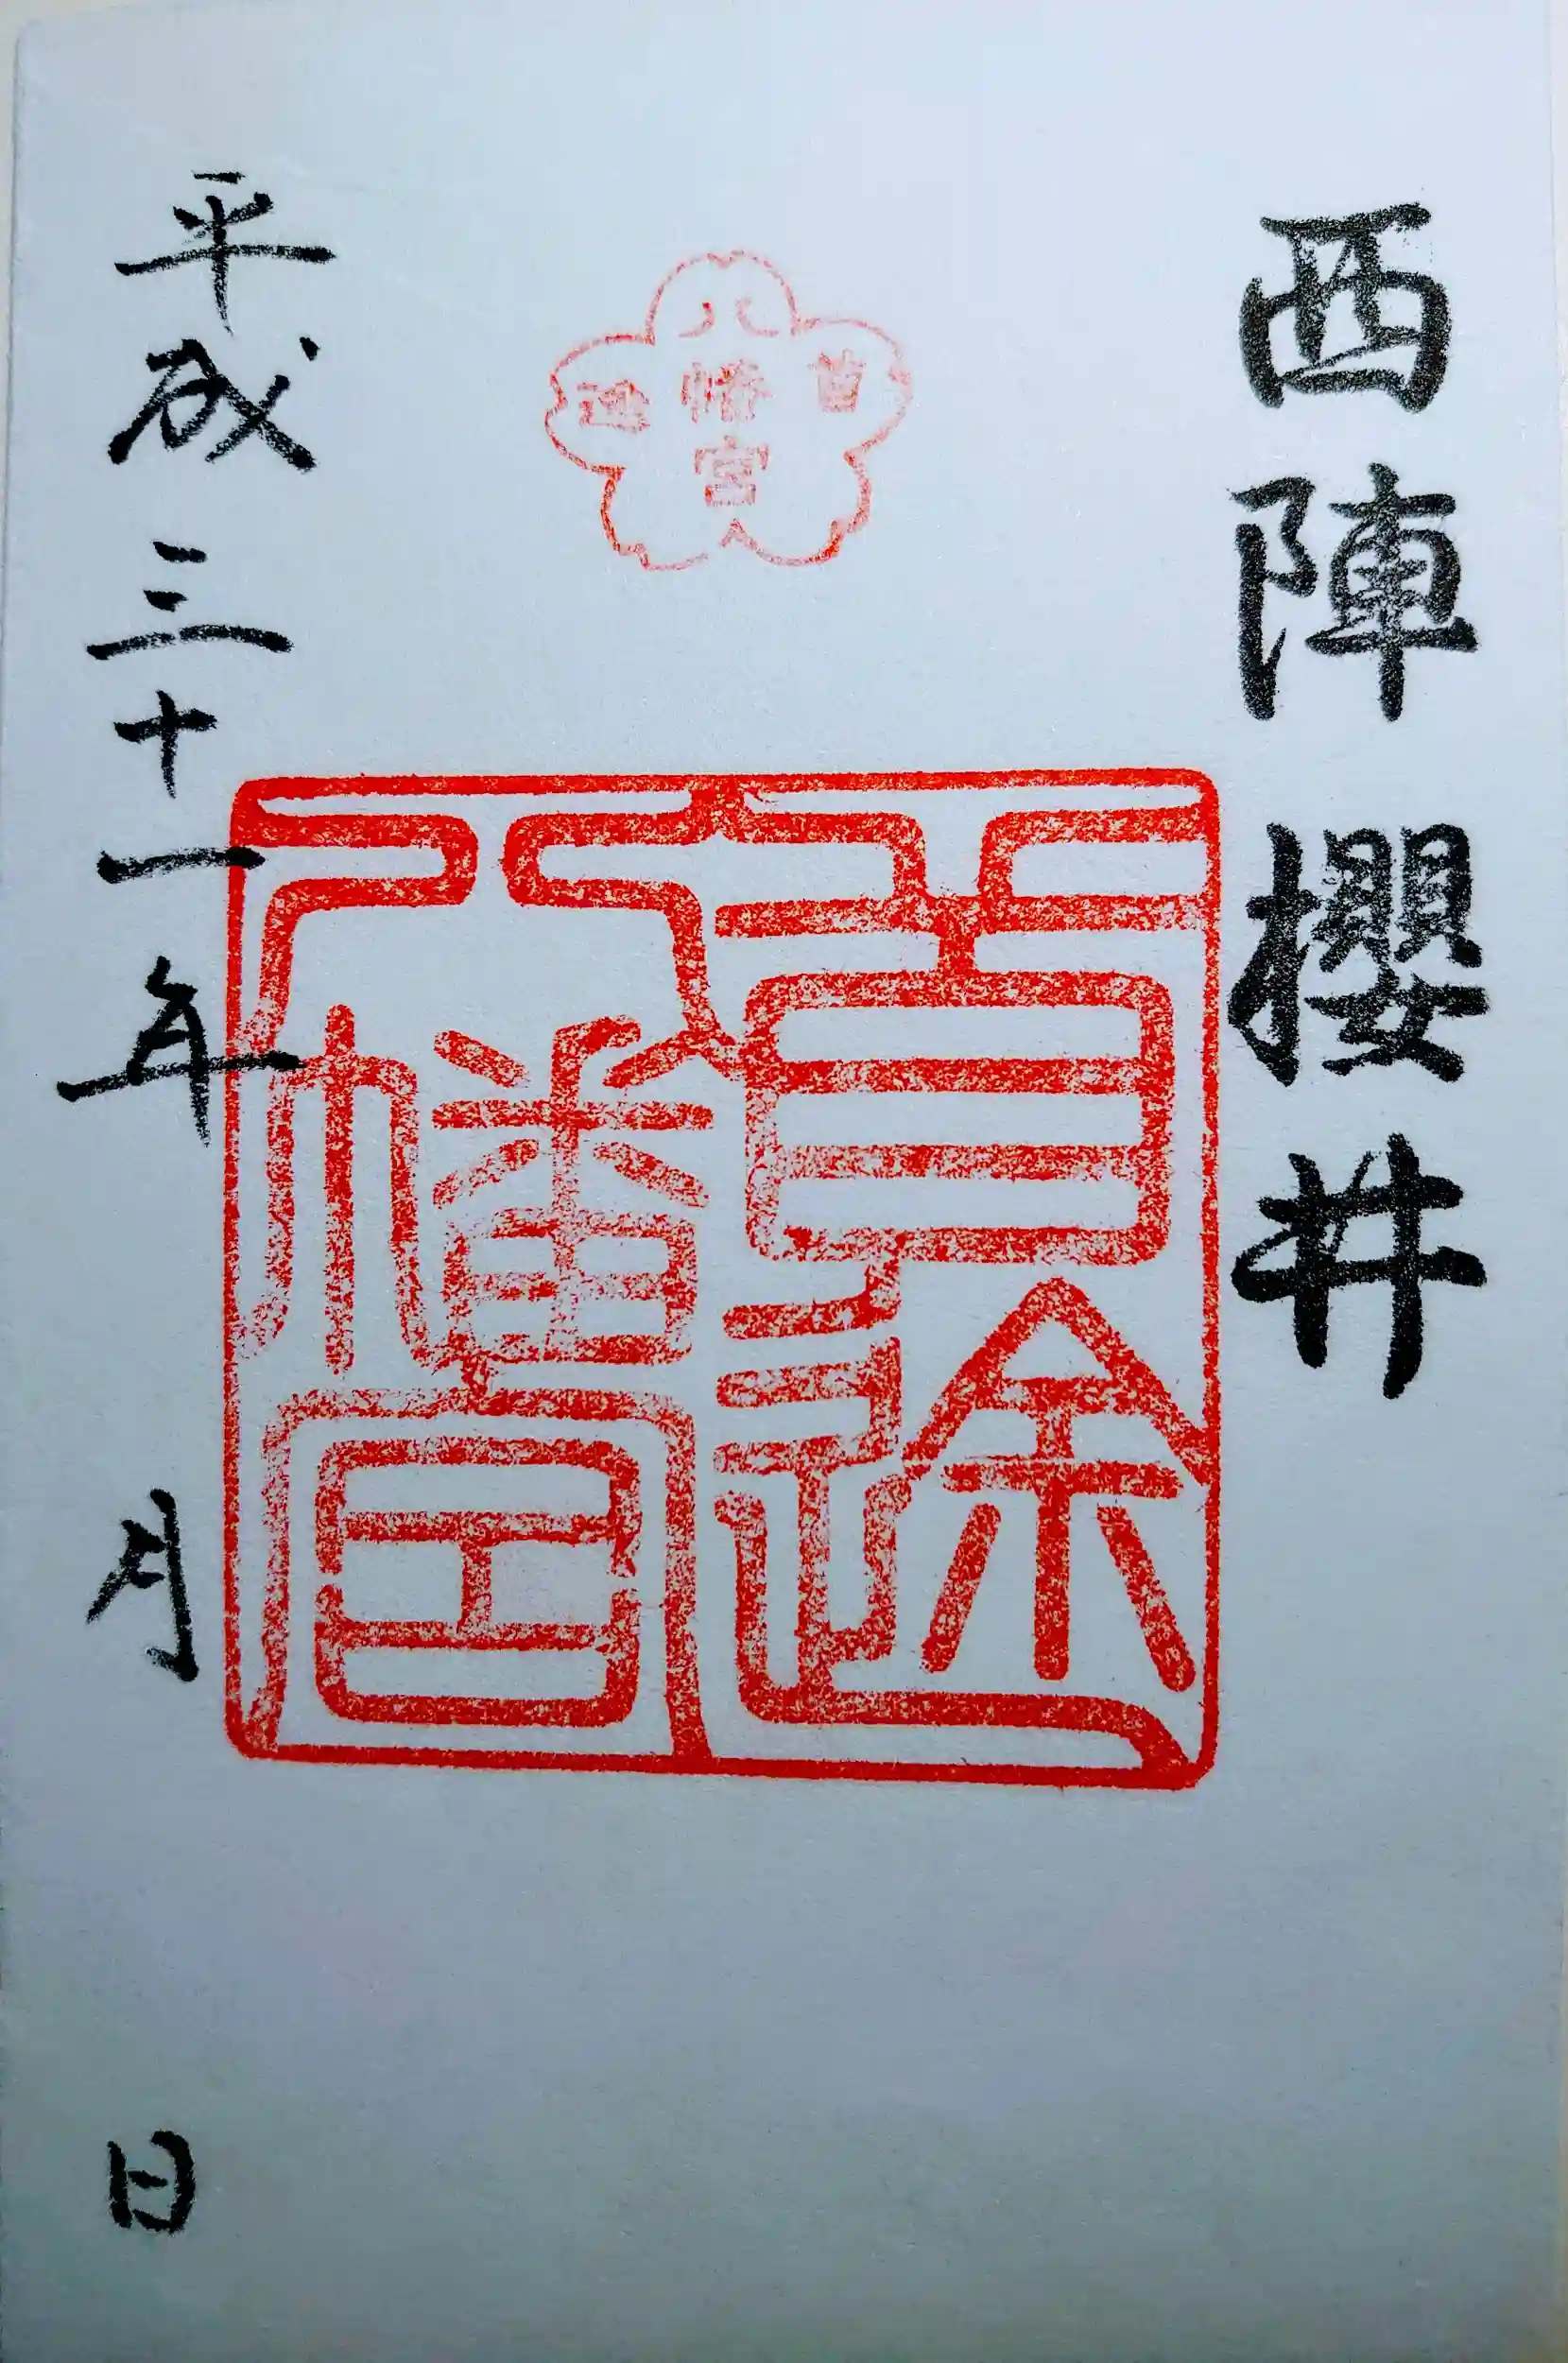 西陣櫻井
八幡宮
首途
首途
八幡宮
平成三十一年 月 日